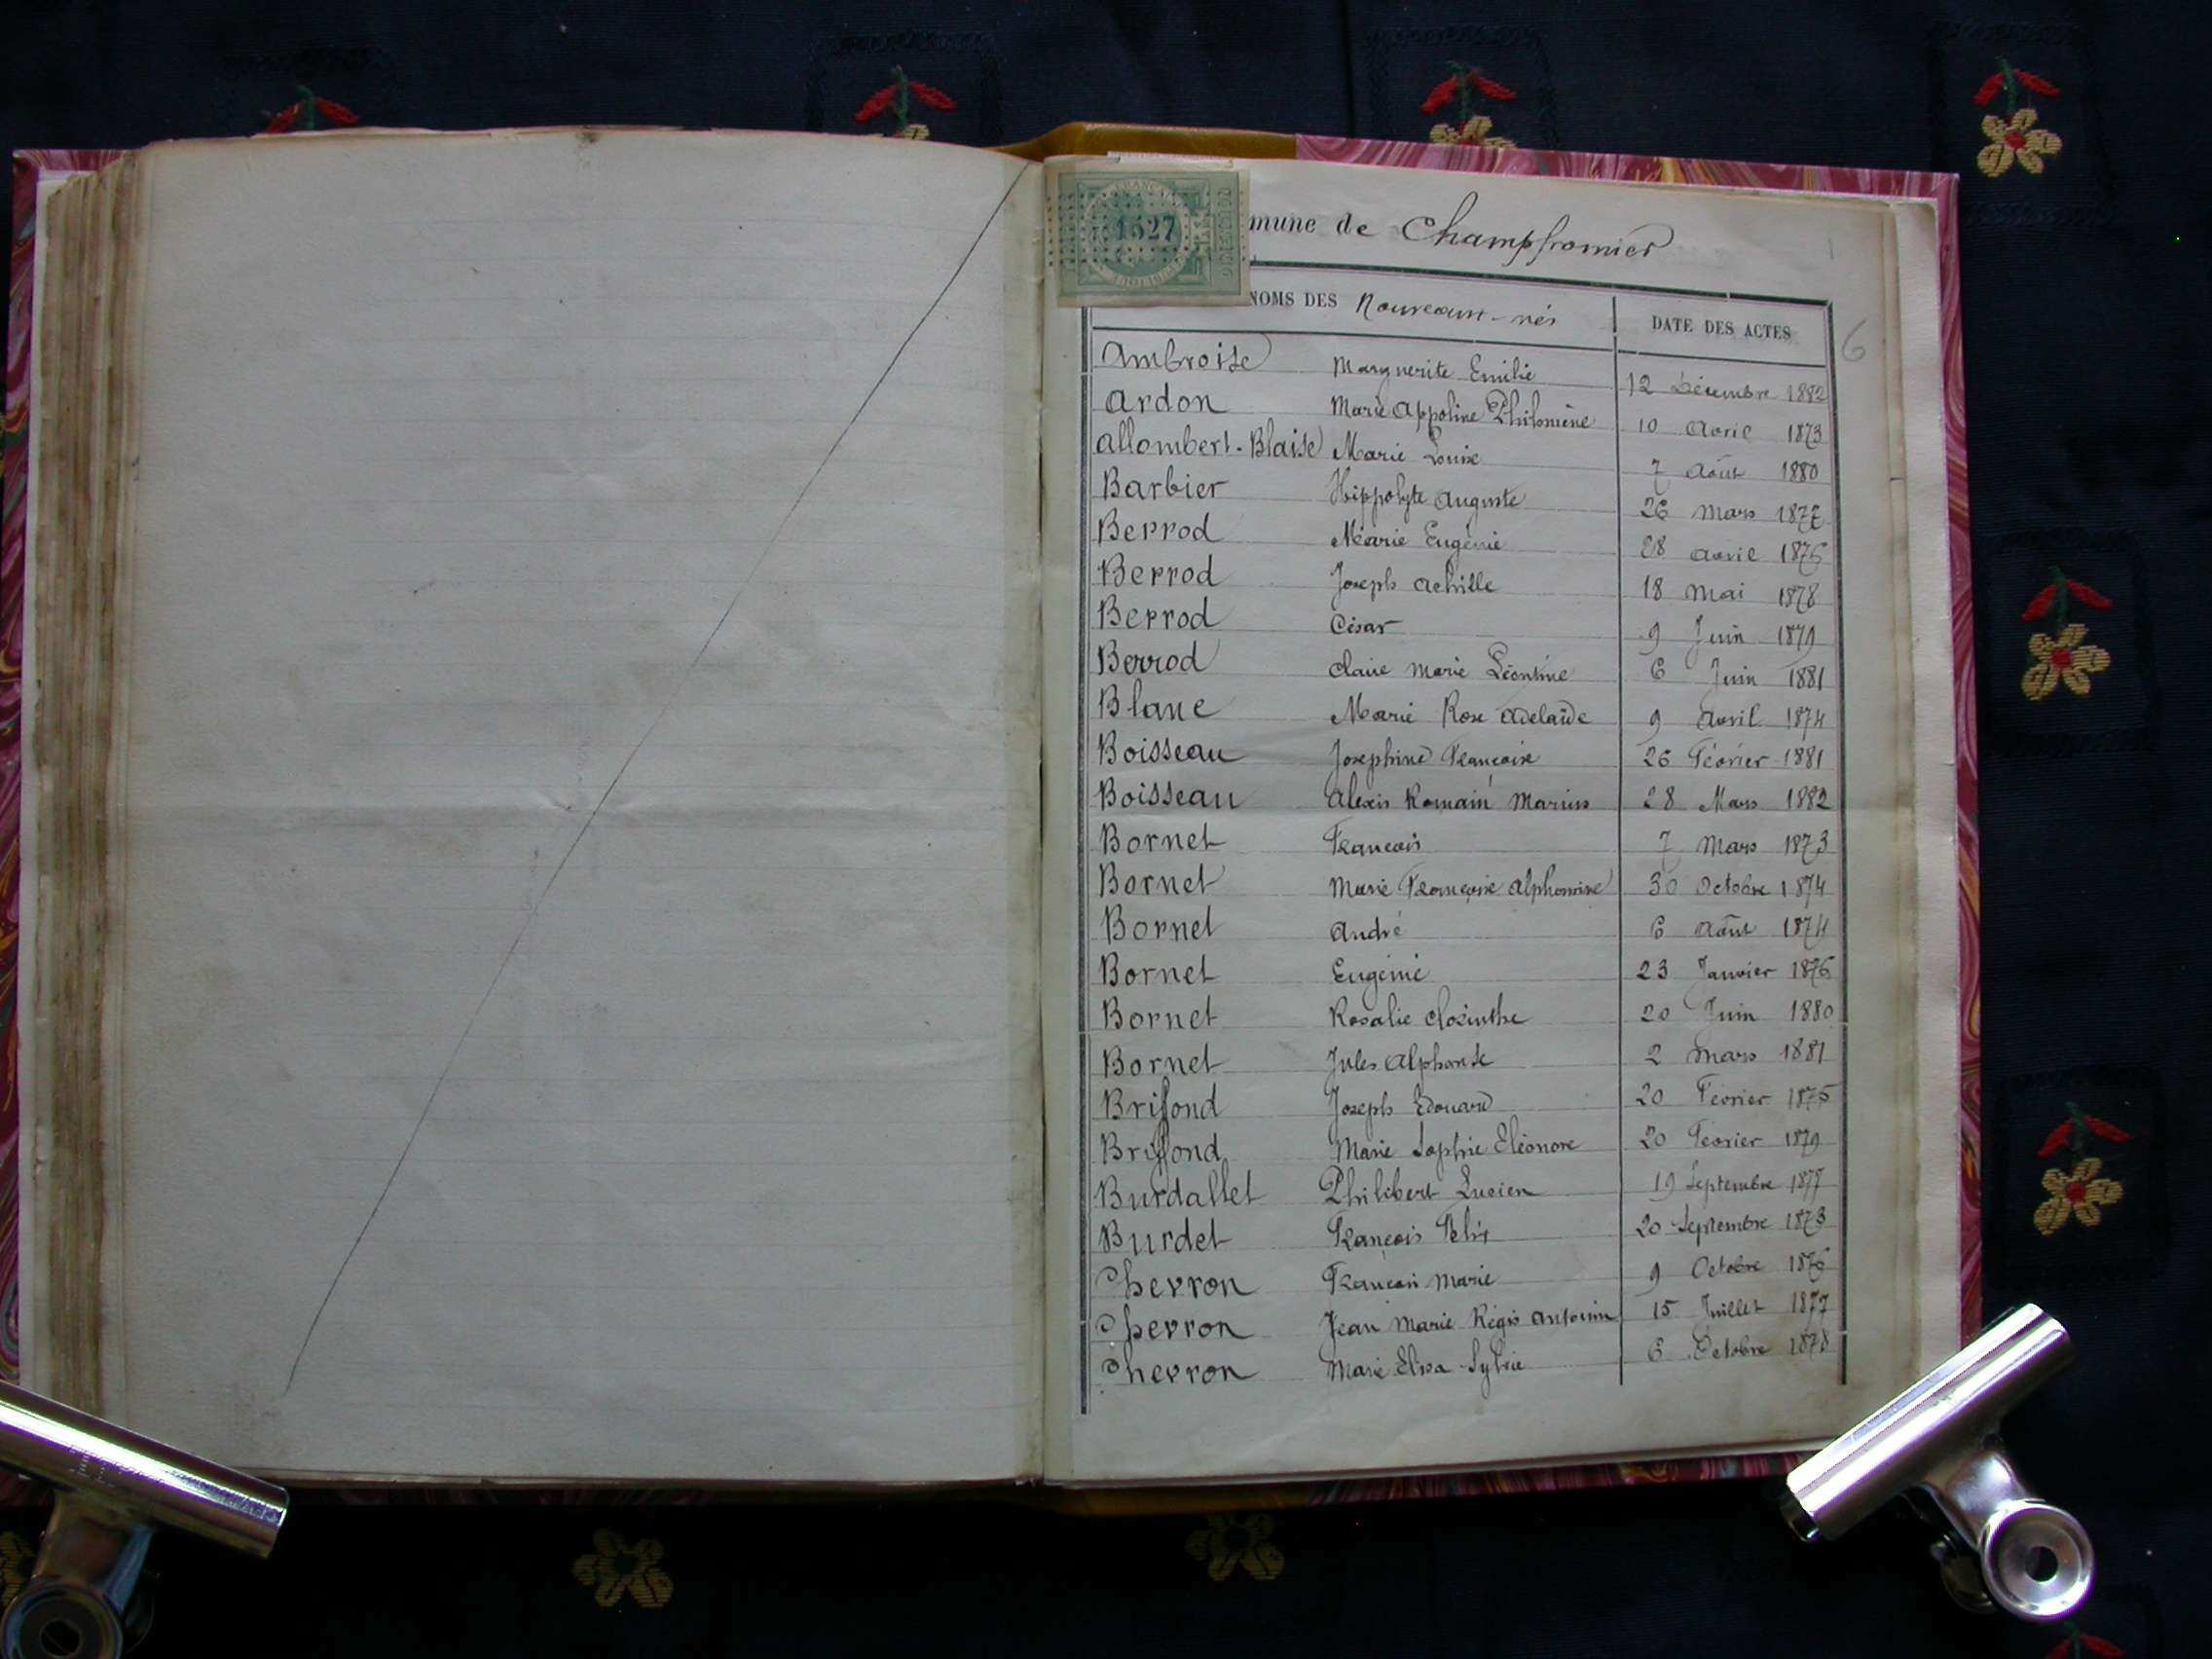 1527
mune de Champfromier
NOMS DES Nouveaux-nés DATE DES ACTES
6
Ambroise Marguerite Emilie 12 Décembre 1882
Ardon Marie Appoline Philomène 10 Avril 1873
Allombert-Blaise Marie Louise 7 Août 1880
Barbier Hippolyte Auguste 26 Mars 1877
Berrod Marie Eugénie 28 Avril 1876
Berrod Joseph Achille 18 Mai 1878
Berrod César 9 Juin 1879
Berrod Claire Marie Léontine 6 Juin 1881
Blanc Marie Rose Adelaïde 9 Avril 1874
Boisseau Josephine Francoise 26 Février 1881
Boisseau Alexis Romain Marius 28 Mars 1882
Bornet Francois 7 Mars 1873
Bornet Marie Françoise Alphonsine 30 Octobre 1874
Bornet André 6 Août 1874
Bornet Eugénie 23 Janvier 1876
Bornet Rosalie 20 Juin 1880
Bornet Jules Alphonse 2 Mars 1881
Brifond Joseph Edouard 20 Février 1875
Briffond Marie Sophie Eléonore 20 Février 1879
Burdallet Philibert Lucien 19 Septembre 1877
Burdet François Félix 20 Septembre 1873
Chevron François Marie 9 Octobre 1876
Chevron Jean Marie Régis Antonin 15 Juillet 1877
Chevron Marie Elisa Sylvie 6 Octobre 1878